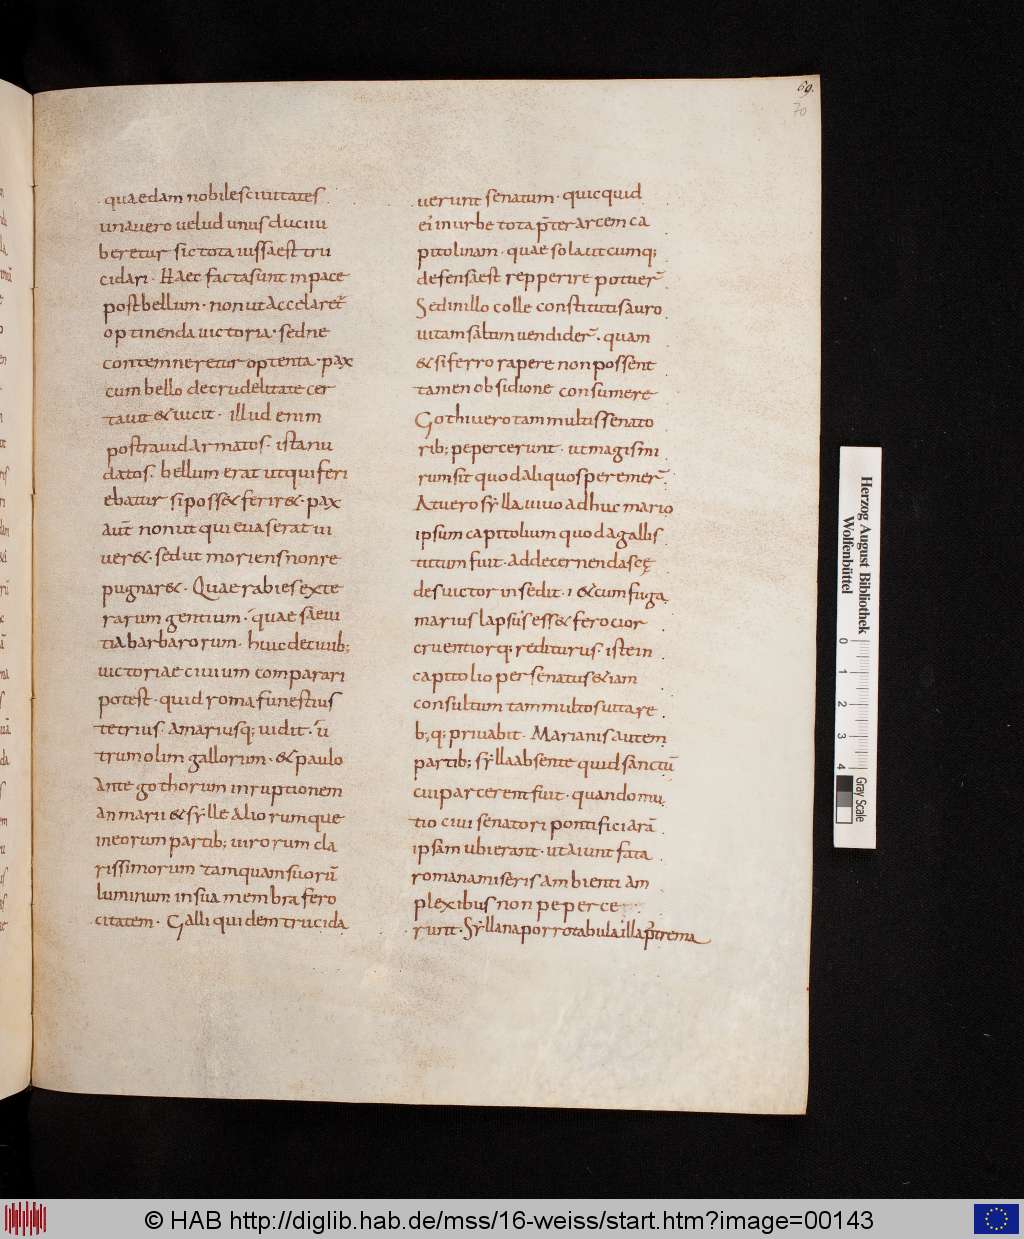 69.
70
quaedam nobiles ciuitates
una uero uelud unus duci iu
beretur sic tota iussa est tru
cidari. Haec facta sunt in pace
post bellum. non ut accelaret̄
optinenda uictoria. sed ne
contemneretur optenta. pax
cum bello de crudelitate cer
tauit & uicit. illud enim
postrauid armatos. ista nu
datos. bellum erat ut qui feri
ebatur si poss& ferir&. pax
aut̄ non ut qui euaserat ui
uer&. sed ut moriens non re
pugnar&. Quae rabies exte
rarum gentium. quae saeui
tia barbarorum. huic de ciuib;
uictoriae ciuium comparari
potest. quid roma funestius
tetrius. amariusq; uidit. u
trum olim gallorum. & paulo
ante gothorum inruptionem
an marii & syllę aliorumque
in eorum partib; uirorum cla
rissimorum tamquam suorū
luminum in sua membra fero
citatem. Galli quidem trucida
uerunt senatum. quicquid
ei in urbe tota p̄ter arcem ca
pitolinam. quae sola utcumq;
defensa est repperire potuer̄
Sed in illo colle constitutis auro
uitam saltim uendider̄. quam
& si ferro rapere non possent
tamen obsidione consumere
Gothi uero tam multis senato
rib; pepercerunt. ut magis mi
rum sit quod aliquos peremer̄.
At uero sylla uiuo adhuc mario
ipsum capitolium quod a gallis
tutum fuit. ad decernendas cę
des uictor insedit. & cum fuga
marius lapsus ess& ferocior
cruentiorq; rediturus. iste in
capitolio per senatus &iam
consultum tam multos uita re
b;q; priuabit. Marianis autem
partib; sylla absente quid sanctū
cui parcerent fuit. quando mu
tio ciui senatori pontifici arā
ipsam ubi erant. ut aiunt fata
romana miseris ambienti am
plexibus non peperce
runt. Syllana porro tabula illa p̄trema
Herzog August Bibliothek
Wolfenbüttel
0 1 2 3 4
Gray Scale
© HAB http://diglib.hab.de/mss/16-weiss/start.htm?image=00143